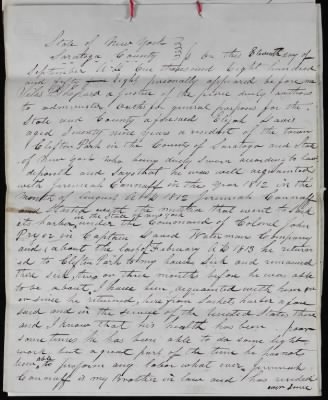 State of New York
Saratoga County } On this Eleventh day of
September A.D. One thousand Eight hundred
and fifty Eight personally appeared before me
a Justice of the peace duly authorised
to administer Oaths for general purposes for the
State and County aforesaid Elijah
aged Seventy nine years a resident of the town
Clifton Park in the County of Saratoga and State
of New York who being duly sworn according to law
deposeth and says that he was well acquainted
with Jeremiah Connaff in the year 1812 in the
month of August A.D. 1812 Jeremiah Connaff
and the that went to Sacketts
in the State of New York
Harbor under the Command of Colonel John
Pryor in Captain David Waterman Company
and about the last of February A.D. 1813 he return
ed to Clifton Park to my house Sick and remained
there Sick two or three months before he was able
to be about. I have been acquainted with him ever
on since he returned here from Sackets harbor afore
said and in the service of the United States there
and I know that his health has been poor
sometimes he has been able to do some light
work but a great part of the time he has not
been able to perform any labor what ever. Jeremiah
Connaff is my brother in law and has resided
ever since